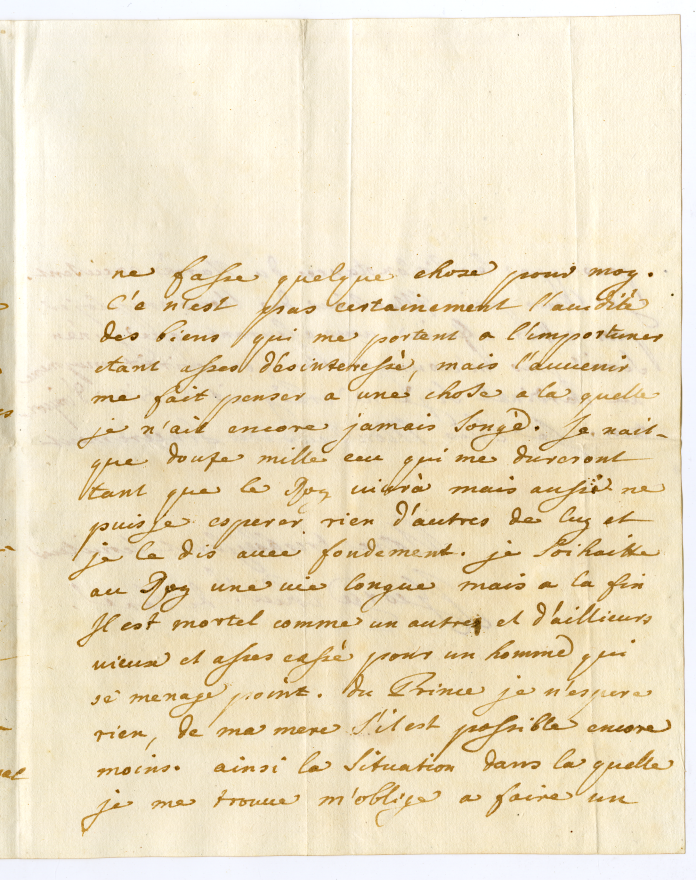 ne fasse quelque chose pour moy.
C'e n'est pas certainement l'avidité
des biens qui me portent a l'importuner
etant asses désinteressé, mais l'avvenir
me fait penser a une chose a la quelle
je n'ait encore jamais songè. Je n'ait
que douse mille ecu qui me dureront
tant que le Roy vivrà mais aussi ne
puisje esperer rien d'autres de luy et
je le dis avec fondement. je Soihaitte
au Roy une vie longue mais a la fin
Il est mortel comme un autre et d'aillieurs
vieux et asses cassé pour un homme qui
se menage point. du Prince je n'espere
rien, de ma mere S'il est possible encore
moins. ainsi la Situation dans la quelle
je me trouve m'oblige a faire un